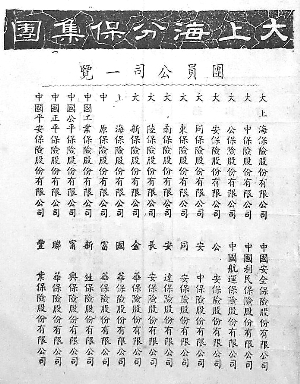 大上海分保集團
團員公司一覽
大上海保險股份有限公司
大中保險股份有限公司
大公保險股份有限公司
大安保險股份有限公司
大同保險股份有限公司
大東保險股份有限公司
大南保險股份有限公司
大陸保險股份有限公司
大新保險股份有限公司
上海保險股份有限公司
中原保險股份有限公司
中國工業保險股份有限公司
中國公平保險股份有限公司
中國正平保險股份有限公司
中國平安保險股份有限公司
中國安全保險股份有限公司
中國利民保險股份有限公司
中國航運保險股份有限公司
公安保險股份有限公司
安中保險股份有限公司
同安保險股份有限公司
安達保險股份有限公司
長安保險股份有限公司
金華保險股份有限公司
國華保險股份有限公司
富華保險股份有限公司
新保險股份有限公司
富興保險股份有限公司
聯華保險股份有限公司
豐業保險股份有限公司